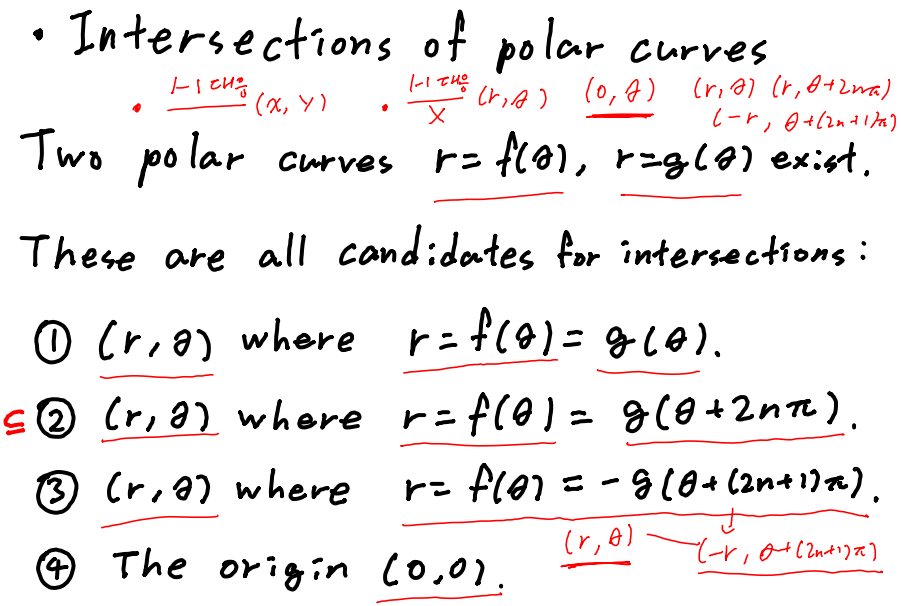 • Intersections of polar curves
• 1-1 대응 (x, y) • 1-1 대응 X (r, θ) (0, θ) (r, θ) (r, θ+2nπ)
(-r, θ+(2n+1)π)
Two polar curves r=f(θ), r=g(θ) exist.
These are all candidates for intersections:
① (r, θ) where r=f(θ)=g(θ).
⊆ ② (r, θ) where r=f(θ)=g(θ+2nπ).
③ (r, θ) where r=f(θ)=-g(θ+(2n+1)π).
(r, θ) (-r, θ+(2n+1)π)
④ The origin (0,0).